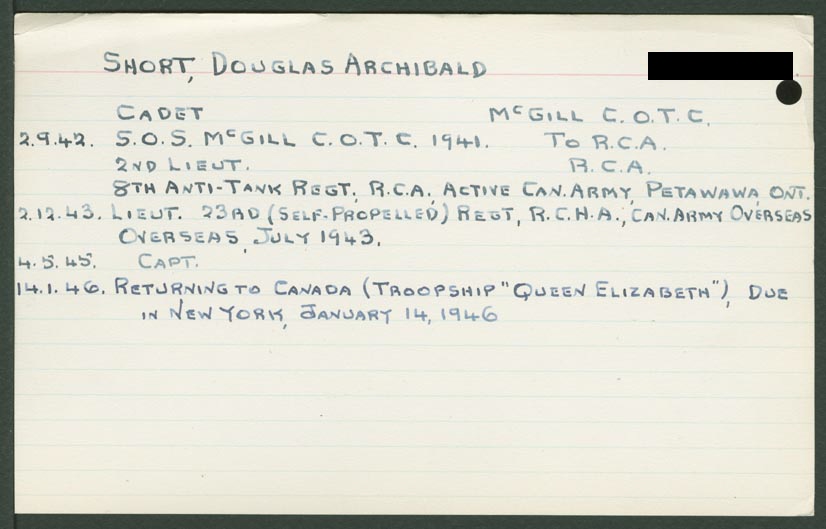 SHORT, DOUGLAS ARCHIBALD
CADET McGILL C.O.T.C.
2.9.42. S.O.S. McGILL C.O.T.C. 1941. To R.C.A.
2ND LIEUT. R.C.A.
8TH ANTI-TANK REGT, R.C.A, ACTIVE CAN. ARMY, PETAWAWA, ONT.
2.12.43. LIEUT. 23RD (SELF-PROPELLED) REGT, R.C.H.A., CAN. ARMY OVERSEAS
OVERSEAS, JULY 1943.
4.5.45. CAPT.
14.1.46. RETURNING TO CANADA (TROOPSHIP "QUEEN ELIZABETH"), DUE
IN NEW YORK, JANUARY 14, 1946